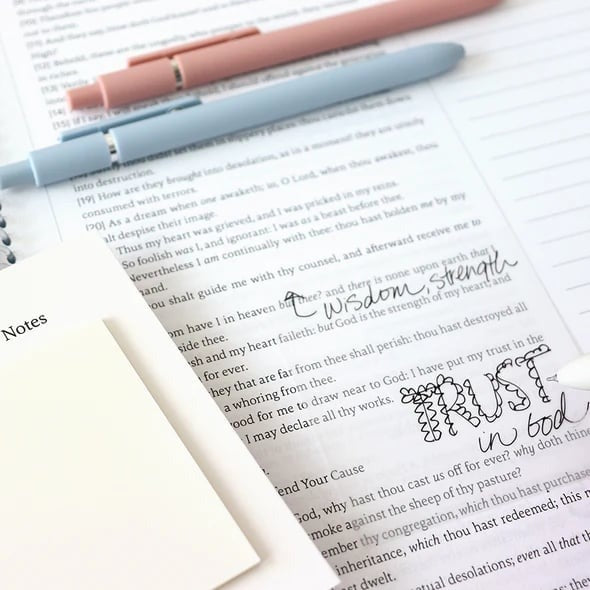 High?
[12] Behold, these are the ungodly, who prosper in the
in riches.
[13] Verily
[14]
[15] If I say, I will speak thus
into destruction.
[19] How are they brought into desolation, as in a moment! they are utterly
consumed with terrors.
[20] As a dream when one awaketh; so, O Lord, when thou awakest, thou
alt despise their image.
Thus my heart was grieved, and I was pricked in my reins.
So foolish was I, and ignorant: I was as a beast before thee.
Nevertheless I am continually with thee: thou hast holden me by my
hand.
ou shalt guide me with thy counsel, and afterward receive me to
om have I in heaven but thee? and there is none upon earth that I
wisdom, strength
side thee.
sh and my heart faileth: but God is the strength of my heart, and
for ever.
hey that are far from thee shall perish: thou hast destroyed all
a whoring from thee.
ood for me to draw near to God: I have put my trust in the
I may declare all thy works.
TRUST
in God
end Your Cause
God, why hast thou cast us off for ever? why doth thine
moke against the sheep of thy pasture?
ember thy congregation, which thou hast purchase
inheritance, which thou hast redeemed; this m
st dwelt.
etual desolations; even all that th
Notes